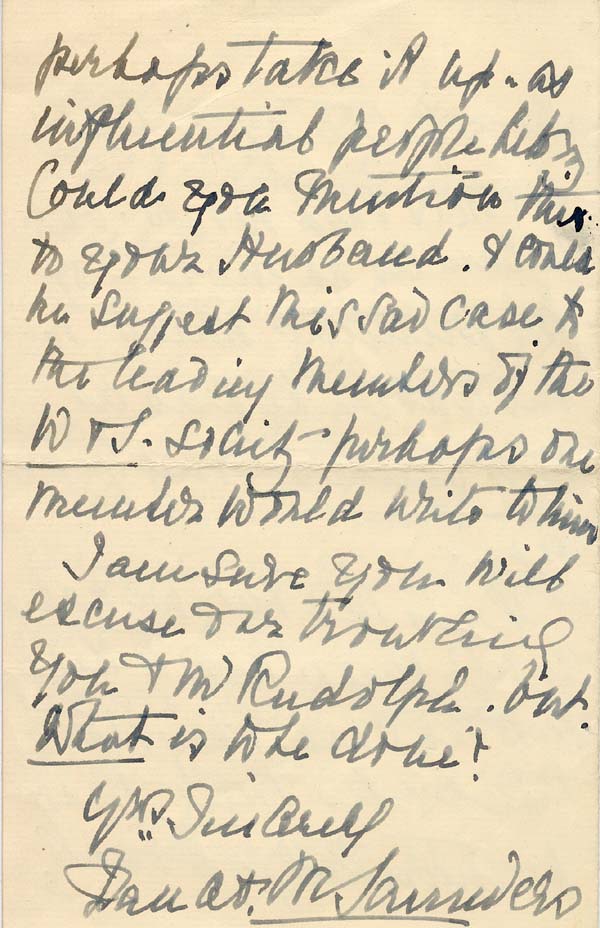 perhaps take it up - as
influential people
Could you mention this
to your Husband. & could
he suggest this sad case to
the leading members of the
W & S. Society perhaps one
member would write to him
I am sure you will
excuse our troubling
you & Mr Rudolph. but.
What is to be done?
Yrs. Sincerely
M Saunders